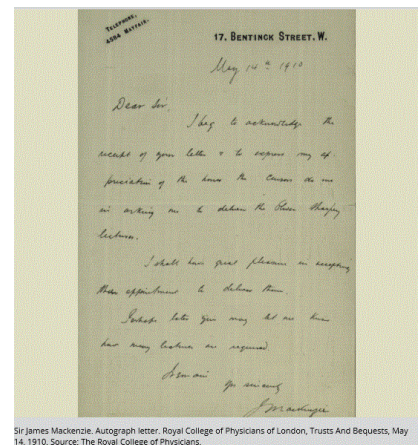 TELEPHONE,
4594 MAYFAIR.
17, BENTINCK STREET. W.
May 14th 1910
Dear Sir.
I beg to acknowledge the
receipt of your letter & to express my ap
preciation of the honor the Censors do me
in asking me to deliver the Oliver Sharpey
lectures.
I shall have great pleasure in accepting
appointment to deliver them.
Perhaps later you may let me know
how many lectures are required.
I remain
yrs sincerely
J Mackenzie
Sir James Mackenzie. Autograph letter. Royal College of Physicians of London, Trusts And Bequests, May
14, 1910. Source: The Royal College of Physicians.